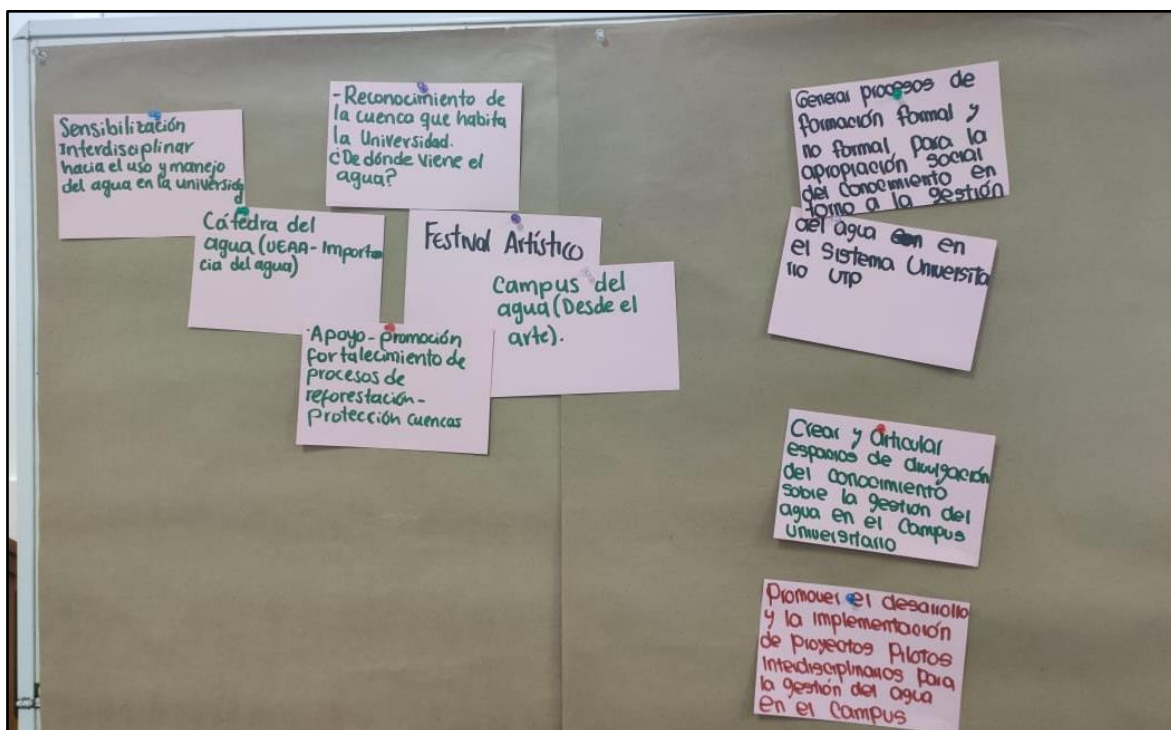 Sensibilización
Interdisciplinar
hacia el uso y manejo
del agua en la universidad
- Reconocimiento de
la cuenca que habita
la Universidad.
¿De dónde viene el
agua?
Cátedra del
agua (UEAA- Importan
cia del agua)
Festival Artístico
Campus del
agua (Desde el
arte).
- Apoyo - promoción
fortalecimiento de
procesos de
reforestación -
Protección cuencas
General procesos de
formación formal y
no formal para la
apropiación social
del conocimiento en
torno a la gestión
del agua en
el Sistema Universita
rio UTP
Crear y articular
espacios de divulgación
del conocimiento
sobre la gestión del
agua en el Campus
Universitario
Promover el desarrollo
y la implementación
de Proyectos Pilotos
Interdisciplinarios para
la gestión del agua
en el Campus